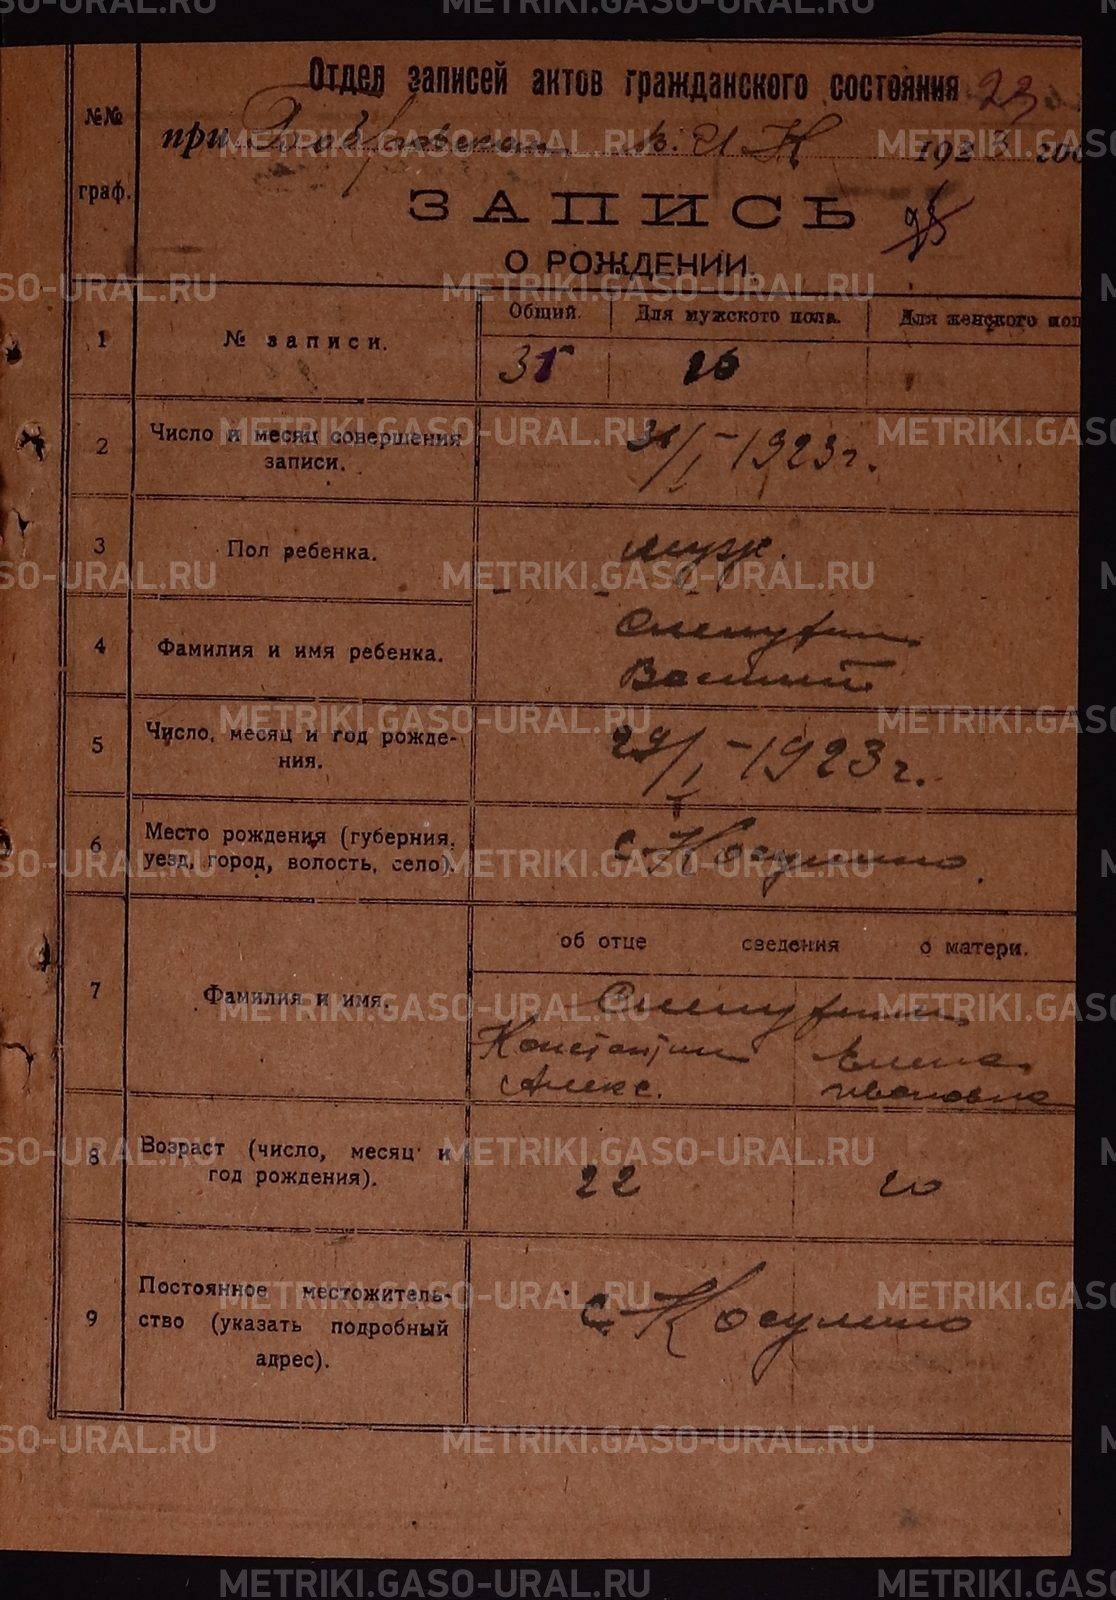 Отдел записей актов гражданского состояния 23
при В. И К 1923 год
№№ граф.
ЗАПИСЬ
О РОЖДЕНИИ.
1 № записи. Общий. Для мужского пола. Для женского пол
35 26
2 Число и месяц совершения записи. 31/I-1923г.
3 Пол ребенка. муж.
4 Фамилия и имя ребенка.
Василий
5 Число, месяц и год рожде-
ния. 29/I-1923г.
6 Место рождения (губерния,
уезд, город, волость, село). с-Косулино.
об отце сведения о матери.
7 Фамилия и имя.
Константин Елена
Алекс. Ивановна
8 Возраст (число, месяц и
год рождения). 22 20
9 Постоянное местожитель-
ство (указать подробный
адрес). с-Косулино
METRIKI.GASO-URAL.RU